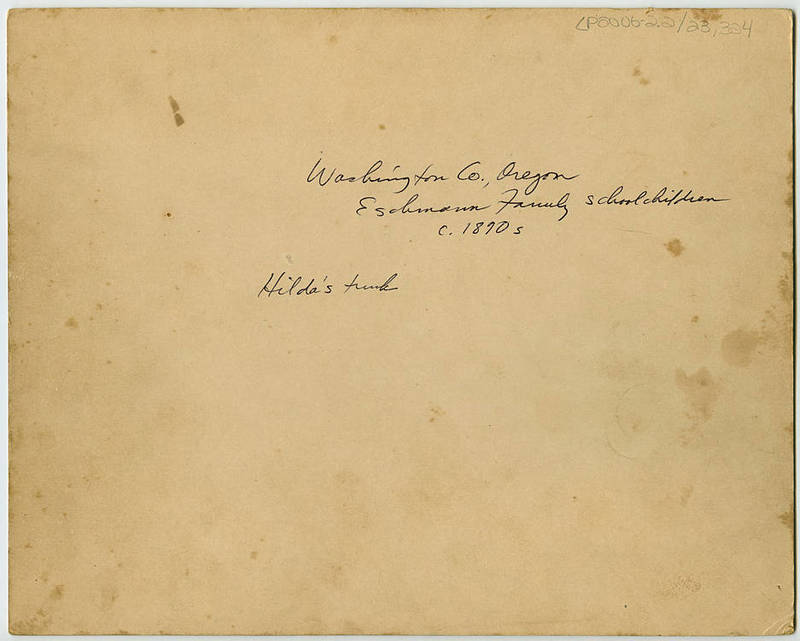 LP2006-2.2/23,324
Washington Co., Oregon
Eschmann Family schoolchildren
c. 1890s
Hilda's trunk